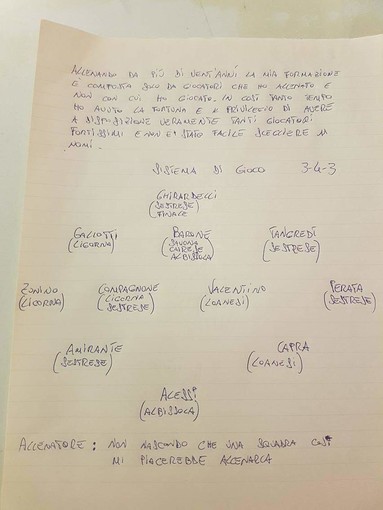 ALLENANDO DA PIÙ DI VENT'ANNI LA MIA FORMAZIONE
È COMPOSTA SOLO DA GIOCATORI CHE HO ALLENATO E
NON CON CUI HO GIOCATO. IN COSÌ TANTO TEMPO
HO AVUTO LA FORTUNA E IL PRIVILEGIO DI AVERE
A DISPOSIZIONE VERAMENTE TANTI GIOCATORI
FORTISSIMI E NON E' STATO FACILE SCEGLIERE 11
NOMI.
SISTEMA DI GIOCO 3-4-3
GHIRARDELLI
(SESTRESE
FINALE)
GALLOTTI BARONE TANGREDI
(LIGORNA) (SAVONA CAIRESE ALBISSOLA) (SESTRESE)
ZUNINO COMPAGNONE VALENTINO PERATA
(LIGORNA) (LIGORNA SESTRESE) (LOANESI) (SESTRESE)
AMIRANTE CAPRA
(SESTRESE) (LOANESI)
ALESSI
(ALBISSOLA)
ALLENATORE: NON NASCONDO CHE UNA SQUADRA COSÌ
MI PIACEREBBE ALLENARLA